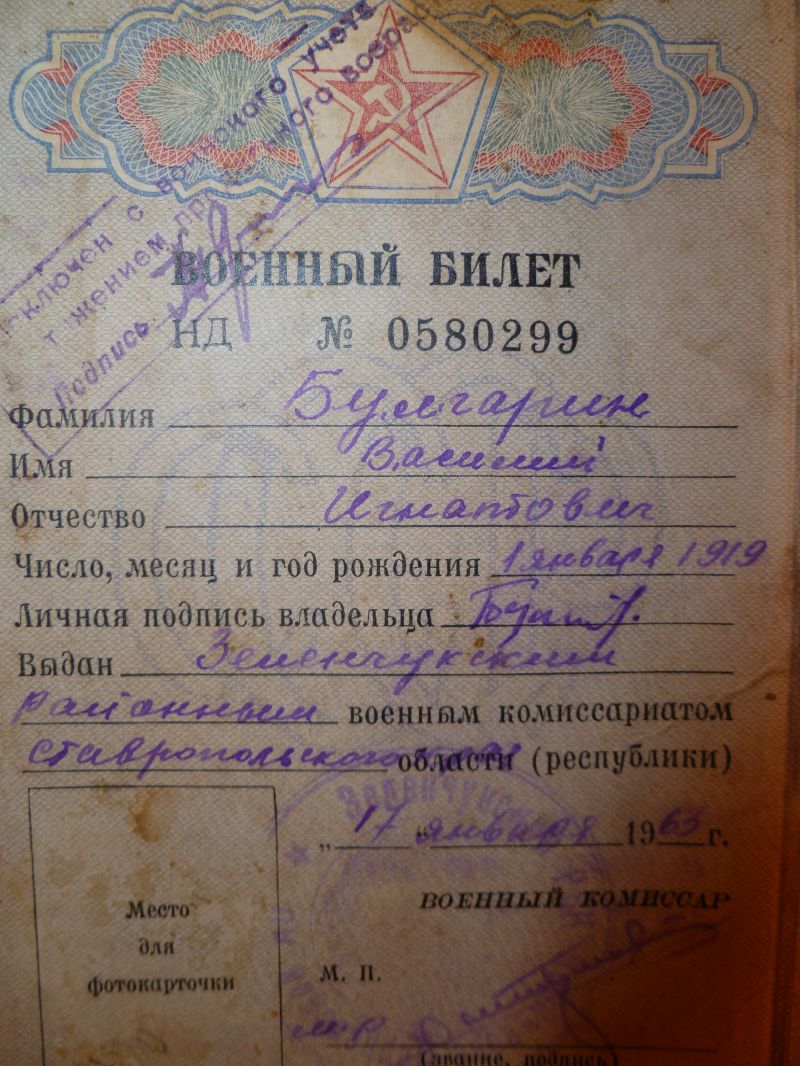 исключен с воинского учета
жением
Подпись
ВОЕННЫЙ БИЛЕТ
НД № 0580299
Фамилия Булгарин
Имя Василий
Отчество Игнатович
Число, месяц и год рождения 1 января 1919
Личная подпись владельца
Выдан Зеленчукским
районным военным комиссариатом
Ставропольского области (республики)
„17“ января 1963 г.
ВОЕННЫЙ КОМИССАР
Место
для
фотокарточки
М. П.
(звание, подпись)